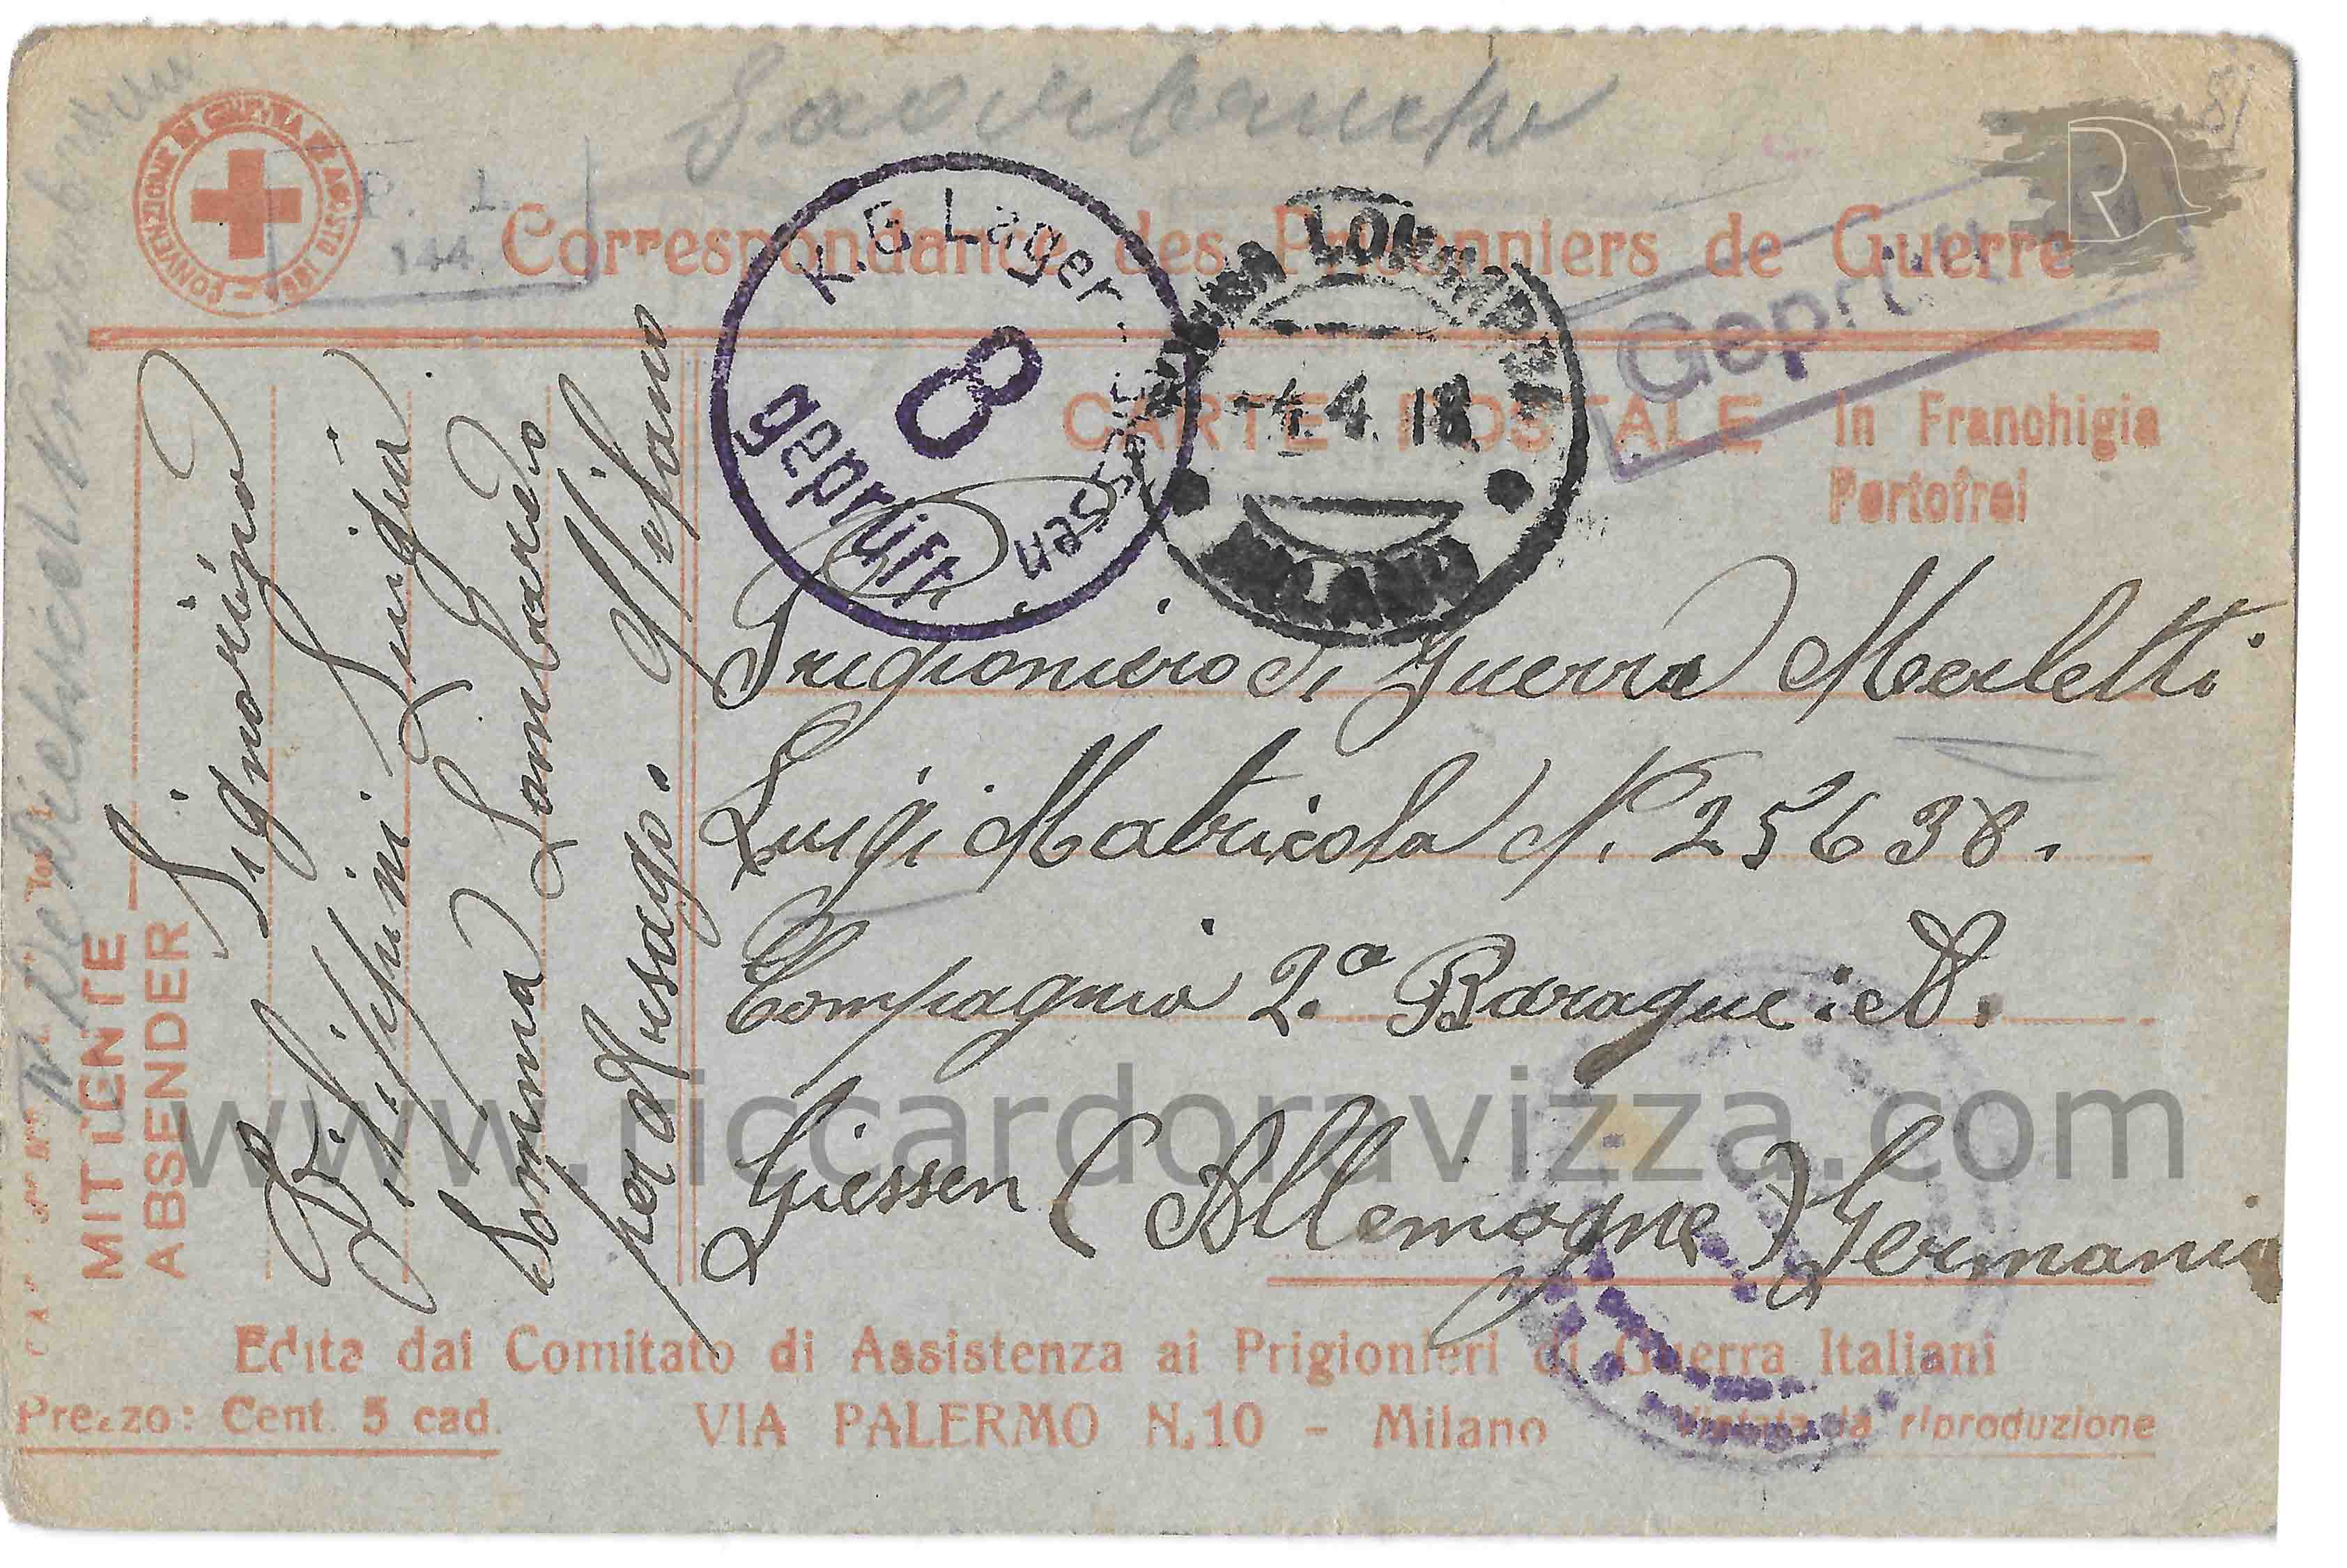 P. L.
144
Correspondance des Prisonniers de Guerre
K.G Lager-Giessen
8
geprüft.
SOMMA LOMBARDO
-4.4.18
MILANO
Geprüft
CARTE POSTALE
In Franchigia
Portofrei
MITTENTE
ABSENDER
Signorina
Luigia
Somma Lombardo
per Milano
Prigioniero di Guerra Merletti
Luigi Matricola N. 25638.
Compagnia 2.a Baraque: D.
Giessen (Allemagne) Germania
Edita dal Comitato di Assistenza ai Prigionieri di Guerra Italiani
Prezzo: Cent. 5 cad.
VIA PALERMO N.10 - Milano
Vietata la riproduzione
www.riccardoravizza.com